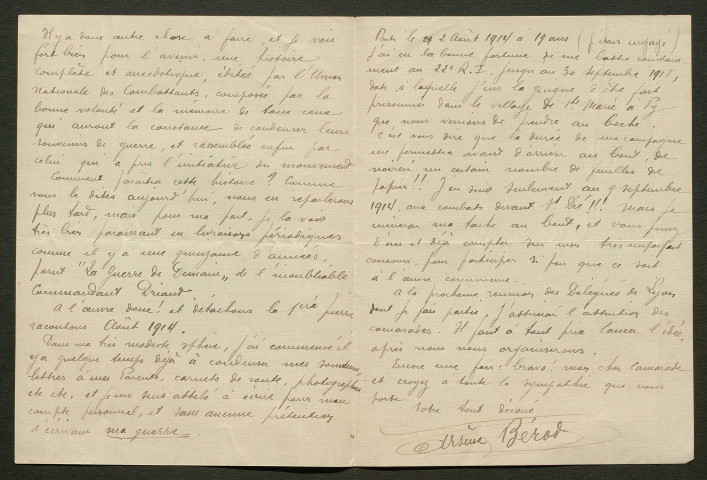 Il y a donc autre chose à faire, et je vois
fort bien pour l'avenir une histoire
complète et anecdotique, éditée par l'Union
Nationale des Combattants, composée par la
bonne volonté et la mémoire de tous ceux
qui auront la constance de condenser leurs
souvenirs de guerre, et rassemblée enfin par
celui qui a pris l'initiative du mouvement
Comment paraîtra cette histoire? Comme
vous le dites aujourd'hui, nous en reparlerons
plus tard, mais pour ma part, je la vois
très bien paraissant en livraisons périodiques
comme il y a une quinzaine d'années,
parut "La Guerre de Demain", de l'inoubliable
Commandant Driant.
A l'œuvre donc! et détachons la 1ère pierre
racontons Août 1914.
Dans ma très modeste sphère, j'ai commencé il
y a quelque temps déjà à condenser mes souvenirs,
lettres à mes Parents, carnets de route, photographies
etc etc, et je me suis attelé à écrire pour mon
compte personnel, et sans aucune prétention
d'écrivain ma guerre.
Parti le 2 Août 1914 à 19 ans (j'étais engagé)
j'ai eu la bonne fortune de me battre constam
ment au 22e R.I. jusqu'au 30 septembre 1918,
date à laquelle j'eus la guigne d'être fait
prisonnier dans le village de Ste Marie à Py
que nous venions de prendre au boche.
C'est vous dire que la durée de ma campagne
me permettra avant d'arriver au bout, de
noircir un certain nombre de feuilles de
papier!! J'en suis seulement au 9 septembre
1914, aux combats devant St Dié!!! Mais je
mènerai ma tâche au bout, et vous pouvez
d'ores et déjà compter sur mon très imparfait
concours, pour participer si peu que ce soit
à l'œuvre commune.
A la prochaine réunion des Délégués de Lyon
dont je fais partie, j'attirerai l'attention des
camarades. Il faut à tout prix lancer l'idée,
après nous nous organiserons.
Encore une fois: bravo! mon cher camarade
et croyez à toute la sympathie que vous
porte
Votre tout dévoué
Arsène Bérod